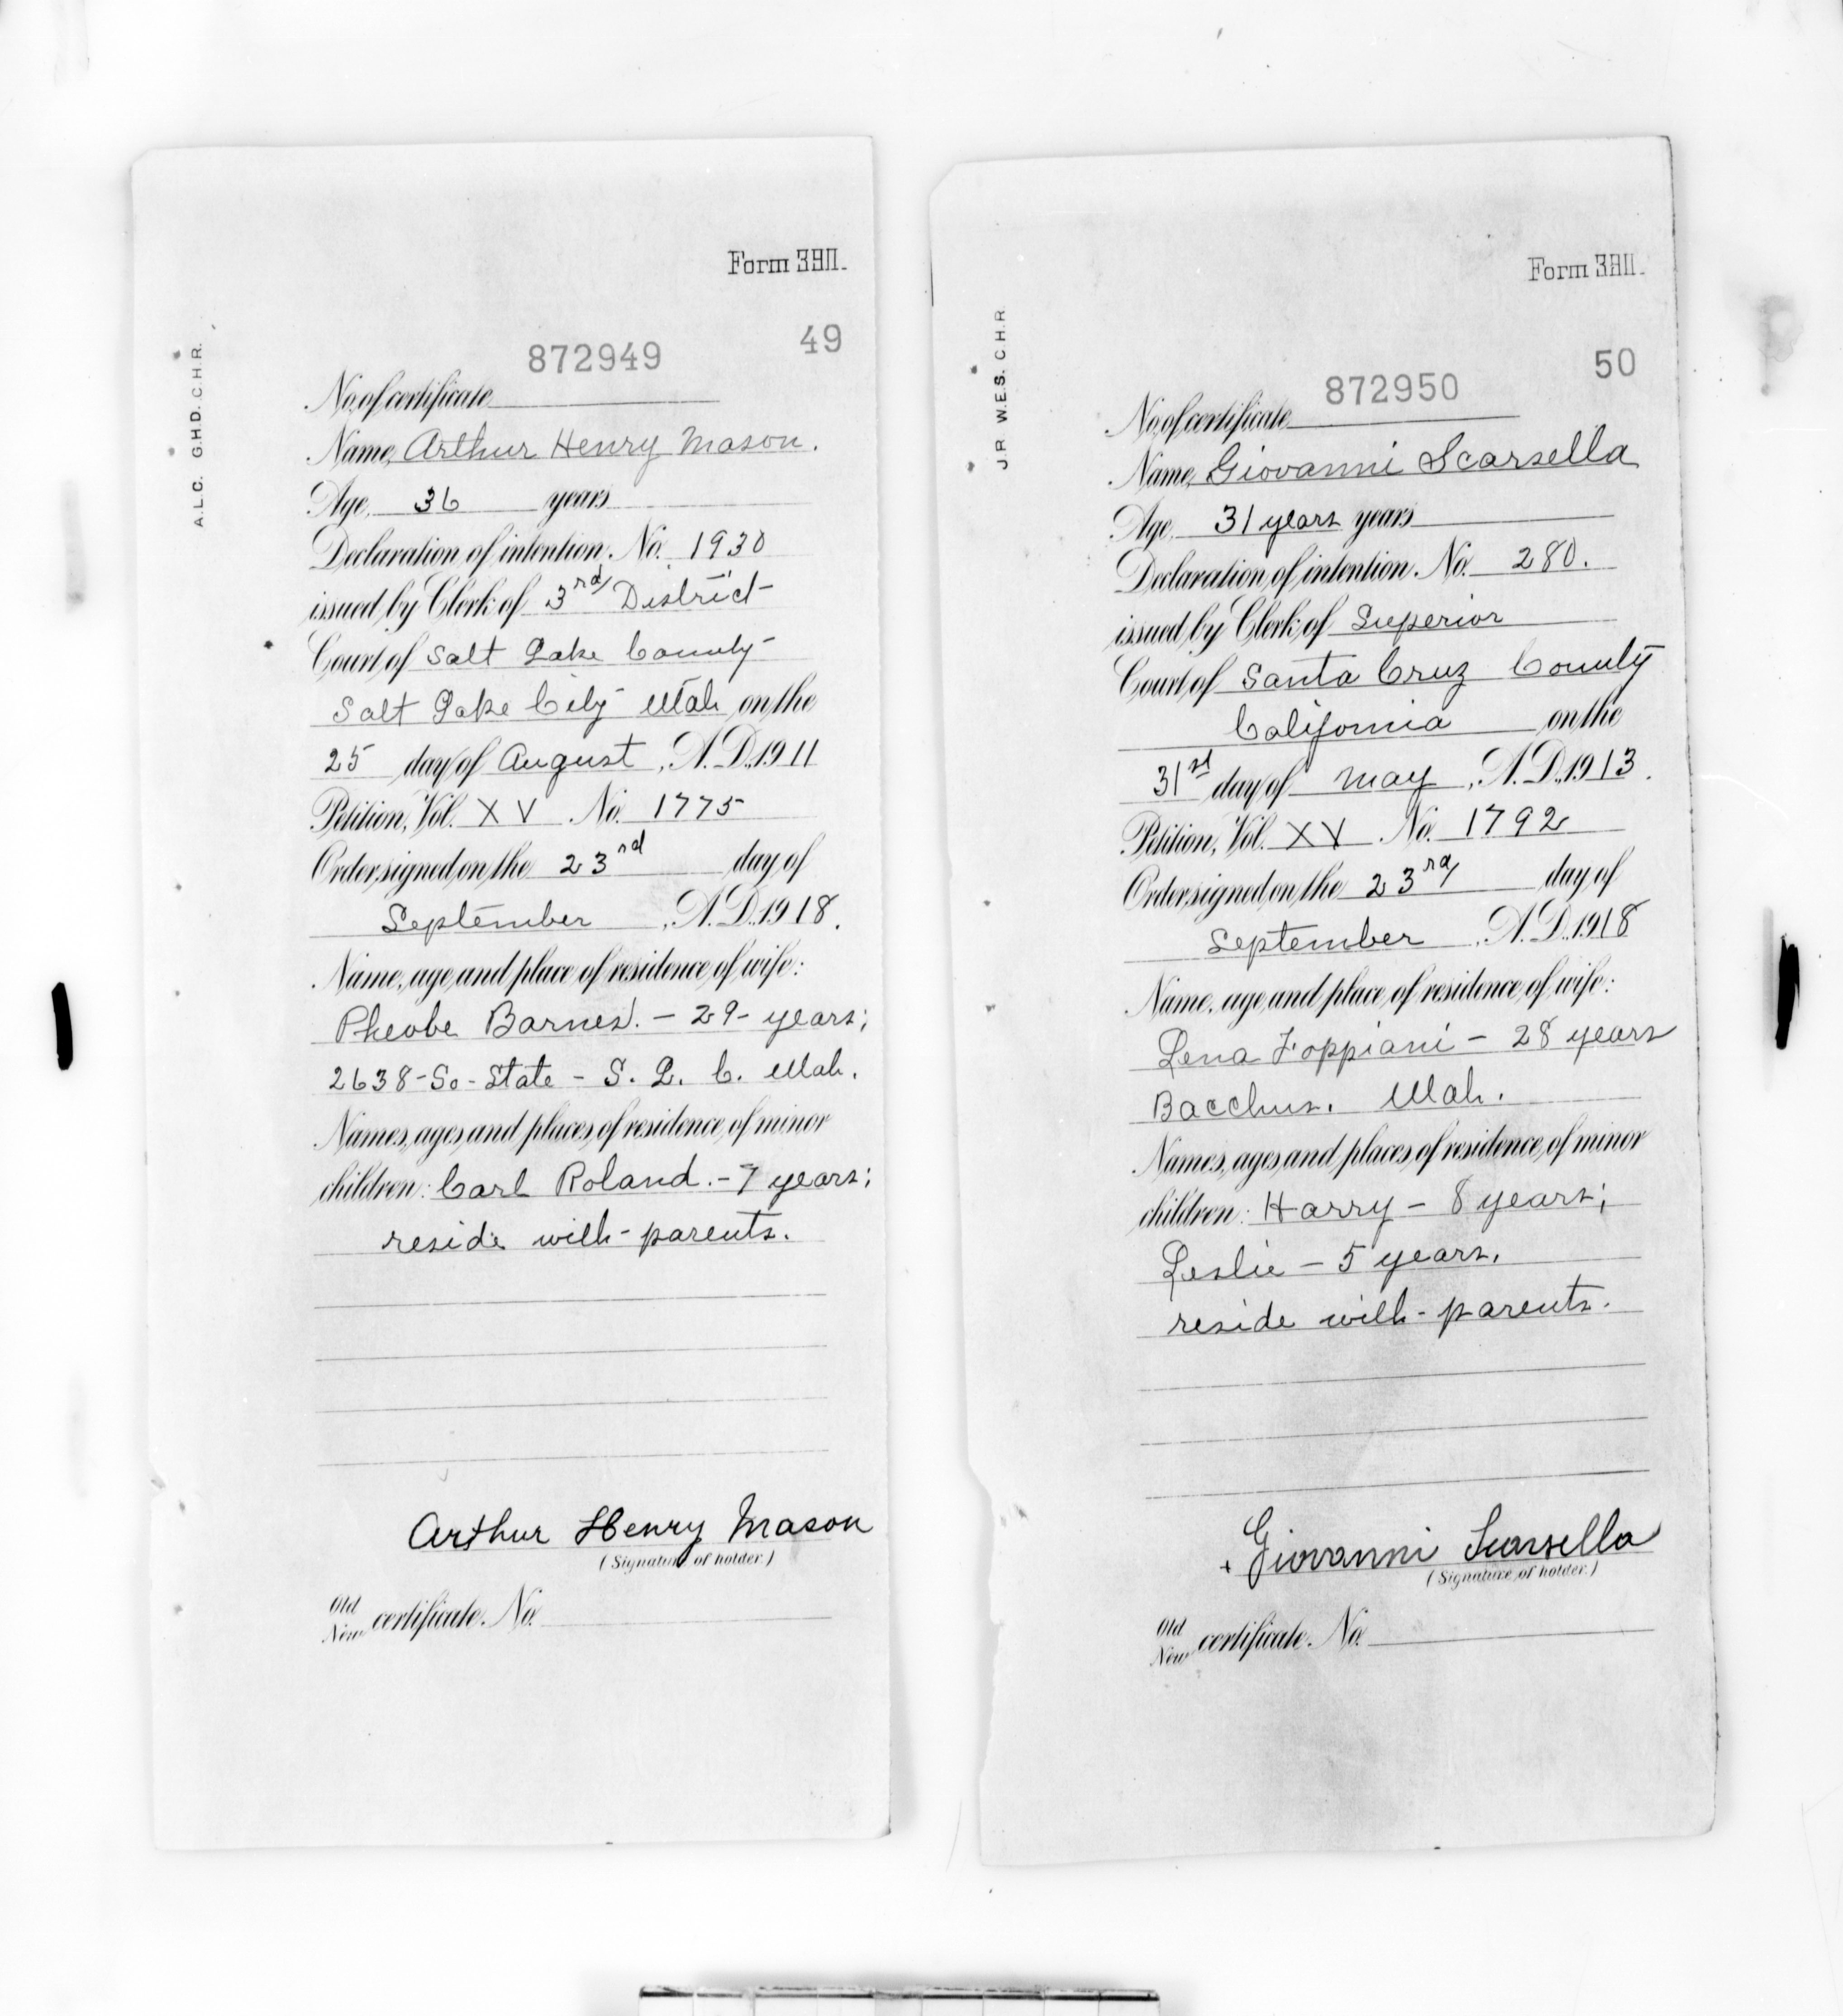 Form 3911.
A.L.C. G.H.D. C.H.R.
872949 49
No. of certificate
Name, Arthur Henry Mason.
Age, 36 years
Declaration of intention. No. 1930
issued by Clerk of 3rd District
Court of Salt Lake County
Salt Lake City Utah on the
25 day of August, A.D. 1911
Petition, Vol. XV No. 1775
Order signed on the 23rd day of
September, A.D. 1918.
Name, age and place of residence of wife:
Pheobe Barnes. - 29- years;
2638-So-State - S. L. C. Utah.
Names, ages and places of residence of minor
children: Carl Roland. - 7 years;
reside with-parents.
Arthur Henry Mason
(Signature of holder.)
Old
New certificate. No.
Form
J.R. W.E.S. C.H.R.
872950 50
No. of certificate
Name, Giovanni Scarsella
Age, 31 years years
Declaration of intention. No. 280.
issued by Clerk of Superior
Court of Santa Cruz County
California on the
31st day of May, A.D. 1913.
Petition, Vol. XV No. 1792
Order signed on the 23rd day of
September, A.D. 1918
Name, age and place of residence of wife:
Lena Foppiani - 28 years
Bacchus. Utah.
Names, ages and places of residence of minor
children: Harry - 8 years;
Leslie - 5 years.
reside with-parents.
+ Giovanni Scarsella
(Signature of holder.)
Old
New certificate. No.